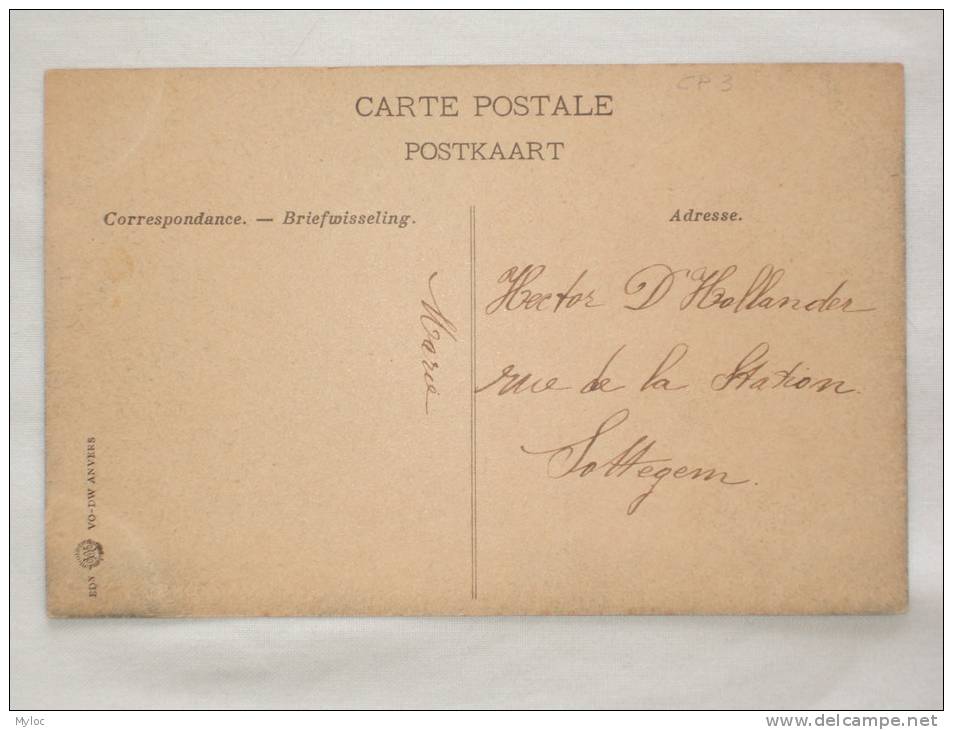 CP 3
CARTE POSTALE
POSTKAART
Correspondance. — Briefwisseling.
Adresse.
Hector D'Hollander
rue de la Station.
Sottegem.
Marie
EDN VO-DW ANVERS
Myloc
www.delcampe.net